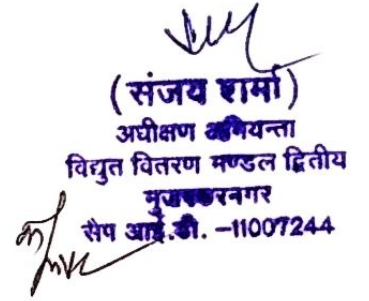 (संजय शर्मा)
अधीक्षण अभियन्ता
विद्युत वितरण मण्डल द्वितीय
मुजफ्फरनगर
सैप आई.डी. -11007244